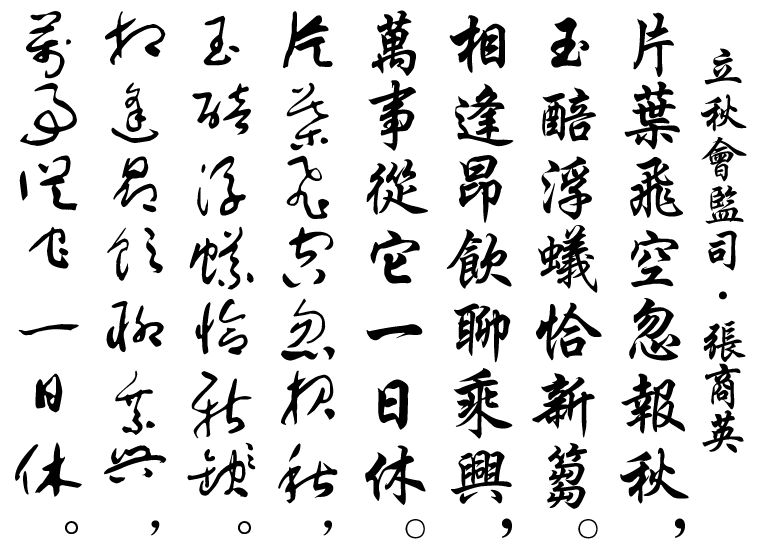 立秋會監司・張商英
片葉飛空忽報秋，
玉醅浮蟻恰新篘。
相逢昂飲聊乘興，
萬事從它一日休。
片葉飛空忽報秋，
玉醅浮蟻恰新。
相逢昂飲聊乘興，
萬事從它一日休。